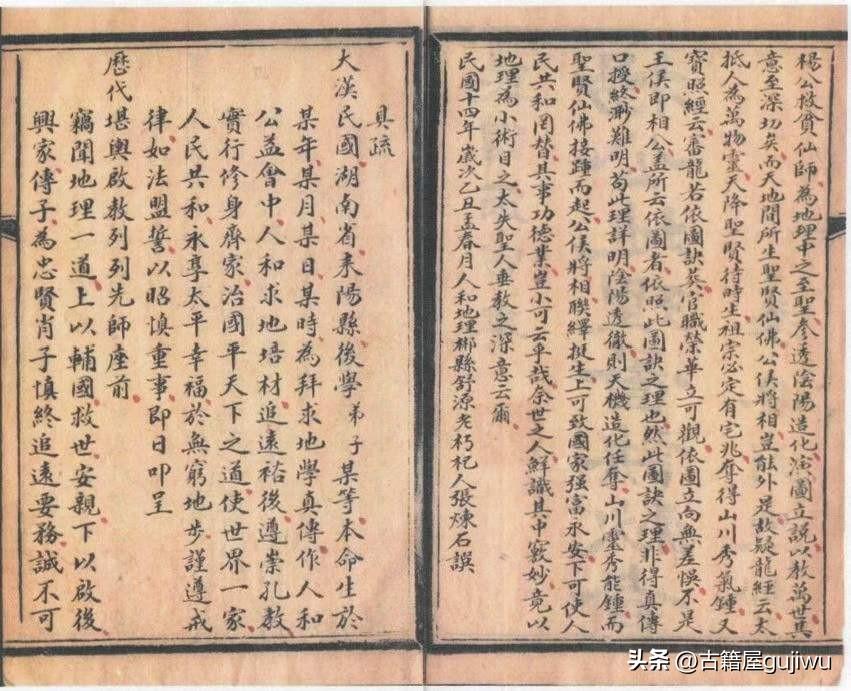 楊公救貧仙師為地理中之至聖參透陰陽造化演圖立說以教萬世其
意至深切矣而天地間所生聖賢仙佛公侯將相豈能外是故疑龍經云太
抵人為萬物靈天降聖賢待時生祖宗必定有宅兆奪得山川秀氣鍾又
寶照經云審龍若依圖訣葬官職榮華立可觀依圖立向無差悞不是
王侯即相公盖所云依圖者依照此圖訣之理也然此圖訣之理非得真傳
口授終渺難明苟此理詳明陰陽透徹則天機造化任奪山川靈秀能鍾而
聖賢仙佛接踵而起公侯將相聯繹挺生上可致國家强富永安下可使人
民共和罔替其事功德業豈小可云乎哉奈世之人鮮識其中竅妙竟以
地理為小術目之太失聖人垂教之深意云爾
民國十四年歲次乙丑孟春月人和地理郴縣舒源老朽杞人張煉石誤
具疏
大漢民國湖南省耒陽縣後學弟子某等本命生於
某年某月某日某時為拜求地學真傳作人和
公益會中人和求地培材追遠裕後遵崇孔教
實行修身齊家治國平天下之道使世界一家
人民共和永享太平幸福於無窮地步謹遵戒
律如法盟誓以昭慎重事即日叩呈
歷代堪輿啟教列列先師座前
竊聞地理一道上以輔國救世安親下以啟後
興家傳子為忠賢肖子慎終追遠要務誠不可
头条 @古籍屋gujiwu